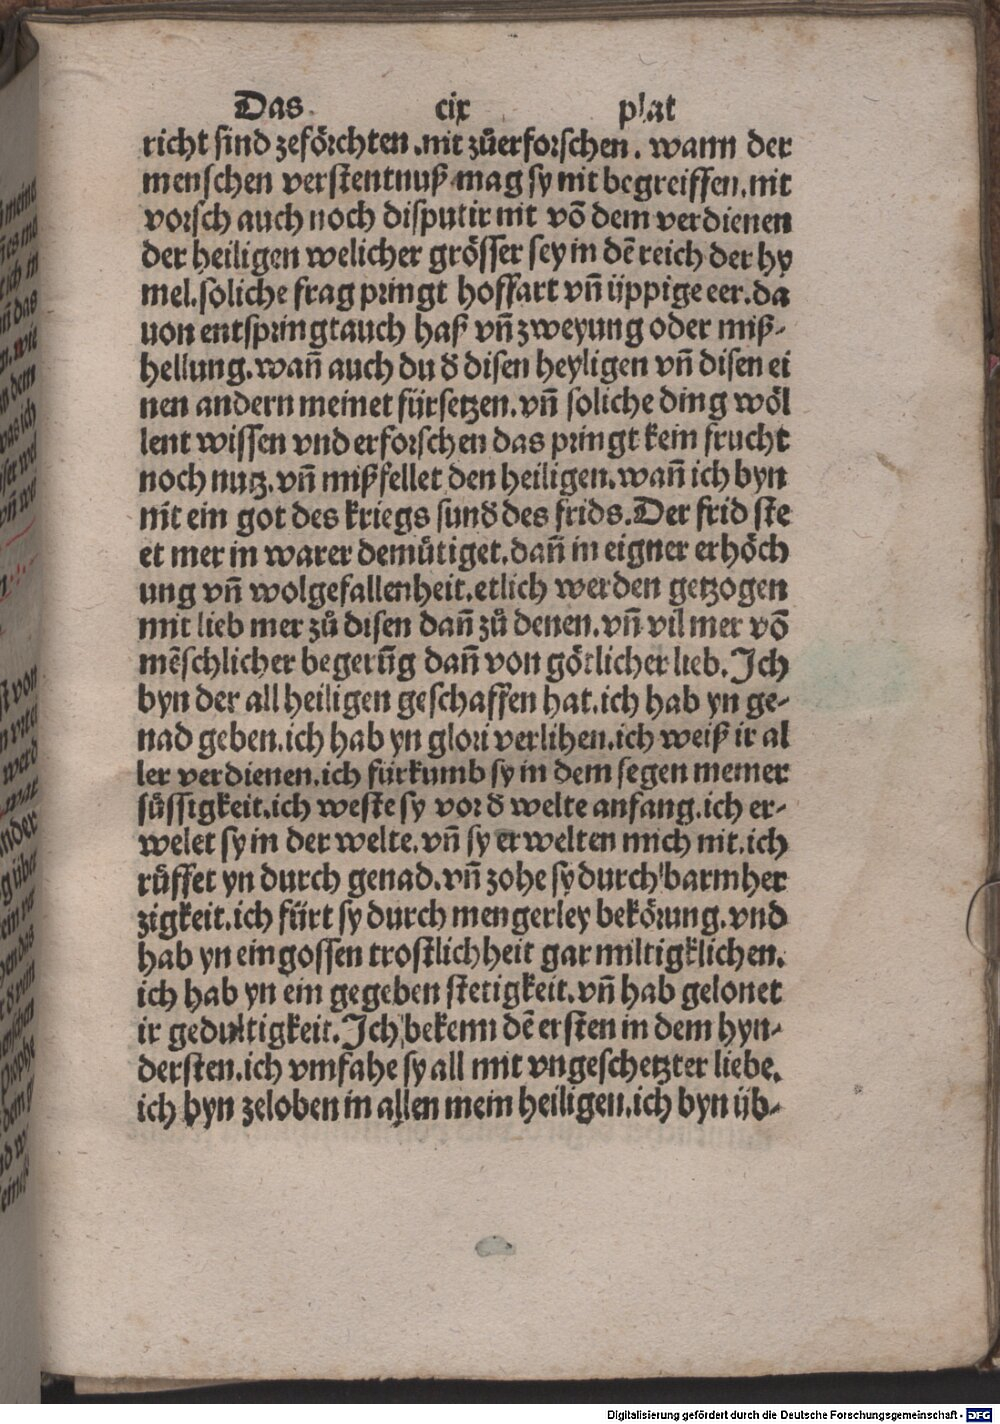 Das cix plat
richt sind zefőrchten .nit zůerforschen. wann der
menschen verstentnuß mag sy nit begreiffen.nit
vorsch auch noch disputir nit võ dem verdienen
der heiligen welicher grösser sey in dẽ reich der hy
mel.soliche frag pringt hoffart vñ üppige eer.da
uon entspringt auch haß vñ zweyung oder miß-
hellung.wañ auch du d̕ disen heyligen vñ disen ei
nen andern meinet fürsetzen.vñ soliche ding wöl
lent wissen vnd erforschen das pringt kein frucht
noch nutz.vñ mißfellet den heiligen.wañ ich byn
nit ein got des kriegs sund̕ des frids.Der frid ste
et mer in warer demütiget.dañ in eigner erhöch
ung vñ wolgefallenheit.etlich werden getzogen
mit lieb mer zů disen dañ zů denen.vñ vil mer võ
mẽschlicher begerũg dañ von götlicher lieb.Ich
byn der all heiligen geschaffen hat.ich hab yn ge-
nad geben.ich hab yn glori verlihen.ich weiß ir al
ler verdienen.ich fürkumb sy in dem segen meiner
süssigkeit.ich weste sy vor d̕ welte anfang.ich er-
welet sy in der welte.vñ sy erwelten mich nit.ich
rüffet yn durch genad.vñ zohe sy durch barmher
zigkeit.ich fürt sy durch mengerley bekörung.vnd
hab yn eingossen trostlichheit gar miltigklichen.
ich hab yn ein gegeben stetigkeit.vñ hab gelonet
ir gedultigkeit.Ich bekenn dẽ ersten in dem hyn-
dersten.ich vmfahe sy all mit vngeschetzter liebe.
ich byn zeloben in allen mein heiligen.ich byn üb-
Digitalisierung gefördert durch die Deutsche Forschungsgemeinschaft - DFG